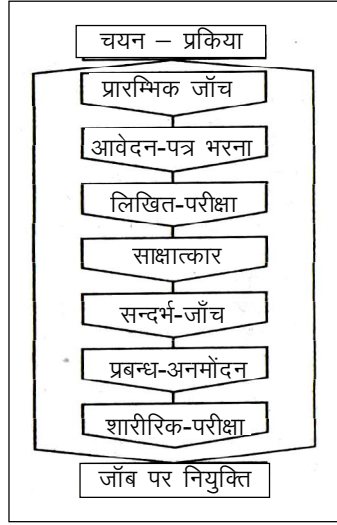 चयन – प्रकिया
प्रारम्भिक जॉच
आवेदन-पत्र भरना
लिखित-परीक्षा
साक्षात्कार
सन्दर्भ-जॉंच
प्रबन्ध-अनमोंदन
शारीरिक-परीक्षा
जॉब पर नियुक्ति